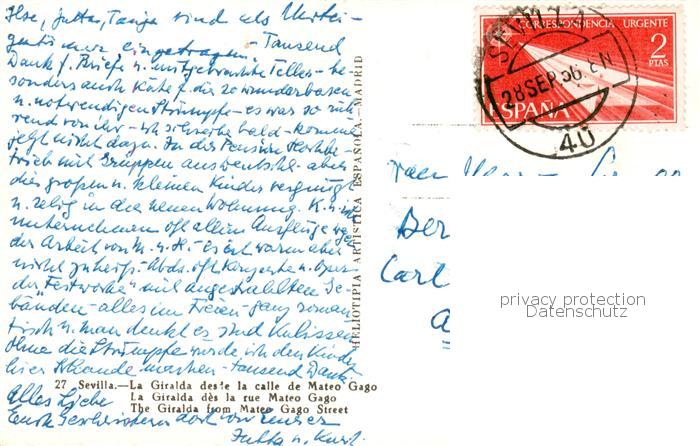 Ilse, Jutta, Tanja sind als
eingetragen. - Tausend
Dank f. Briefe u. mitgebrachte
sonders auch Käte f. die so wunderbaren
u. notwendigen Strümpfe - es war so rüh-
rend von ihr - ich schreibe bald - komme
jetzt nicht dazu. In der Pension
mit Gruppen aus Deutschl. aber
die großen u. kleinen Kinder vergnügt
u. selig in der neuen Wohnung. K. u. ich
unternehmen oft allein Ausflüge wegen
der Arbeit von M. u. H. - Es ist warm aber
nicht zu heiß - Abds. oft Konzerte u.
der "Festwoche" mit angestrahlten Ge-
bäuden - alles im Freien - ganz roman-
tisch u. man denkt es sind Kulissen
Ohne die Strümpfe würde ich den Kindern
hier Schande machen - tausend Dank
27 Sevilla.—La Giralda desde la calle de Mateo Gago
La Giralda dès la rue Mateo Gago
The Giralda from Mateo Gago Street
Alles Liebe
Jutta u. Kurt.
HELIOTIPIA ARTISTICA ESPAÑOLA.—MADRID
CORRESPONDENCIA URGENTE
2
PTAS
ESPAÑA
SEVILLA
28 SEP. 56
40
Ber
Carl
privacy protection
Datenschutz